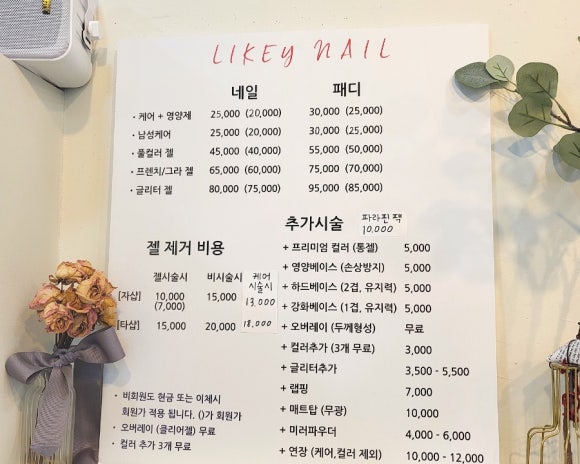 LIKEY NAIL
네일 패디
· 케어 + 영양제 25,000 (20,000) 30,000 (25,000)
· 남성케어 25,000 (20,000) 30,000 (25,000)
· 풀컬러 젤 45,000 (40,000) 55,000 (50,000)
· 프렌치/그라 젤 65,000 (60,000) 75,000 (70,000)
· 글리터 젤 80,000 (75,000) 95,000 (85,000)
젤 제거 비용
젤시술시 비시술시 케어 시술시
[자샵] 10,000 (7,000) 15,000 13,000
[타샵] 15,000 20,000 18,000
· 비회원도 현금 또는 이체시
회원가 적용 됩니다. ()가 회원가
· 오버레이 (클리어젤) 무료
· 컬러 추가 3개 무료
추가시술 파라핀 팩 10,000
+ 프리미엄 컬러 (통젤) 5,000
+ 영양베이스 (손상방지) 5,000
+ 하드베이스 (2겹, 유지력) 5,000
+ 강화베이스 (1겹, 유지력) 5,000
+ 오버레이 (두께형성) 무료
+ 컬러추가 (3개 무료) 3,000
+ 글리터추가 3,500 - 5,500
+ 랩핑 7,000
+ 매트탑 (무광) 10,000
+ 미러파우더 4,000 - 6,000
+ 연장 (케어,컬러 제외) 10,000 - 12,000